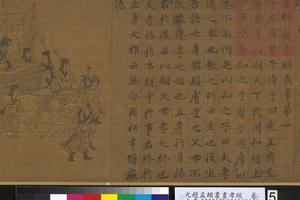 開宗明義章第一
仲尼居曾子侍子曰先王有至
德要道以順天下民用和睦上
不敏何足以知之子曰夫孝
德之本也教之所由生也復坐
吾語女身體髮膚受之父母不
敢毀傷孝之始也立身行道揚
以顯父母孝之終也
夫孝始於事親中於事君終於
立身大雅云無念爾祖聿脩厥
德
元趙孟頫書畫孝經 卷
5